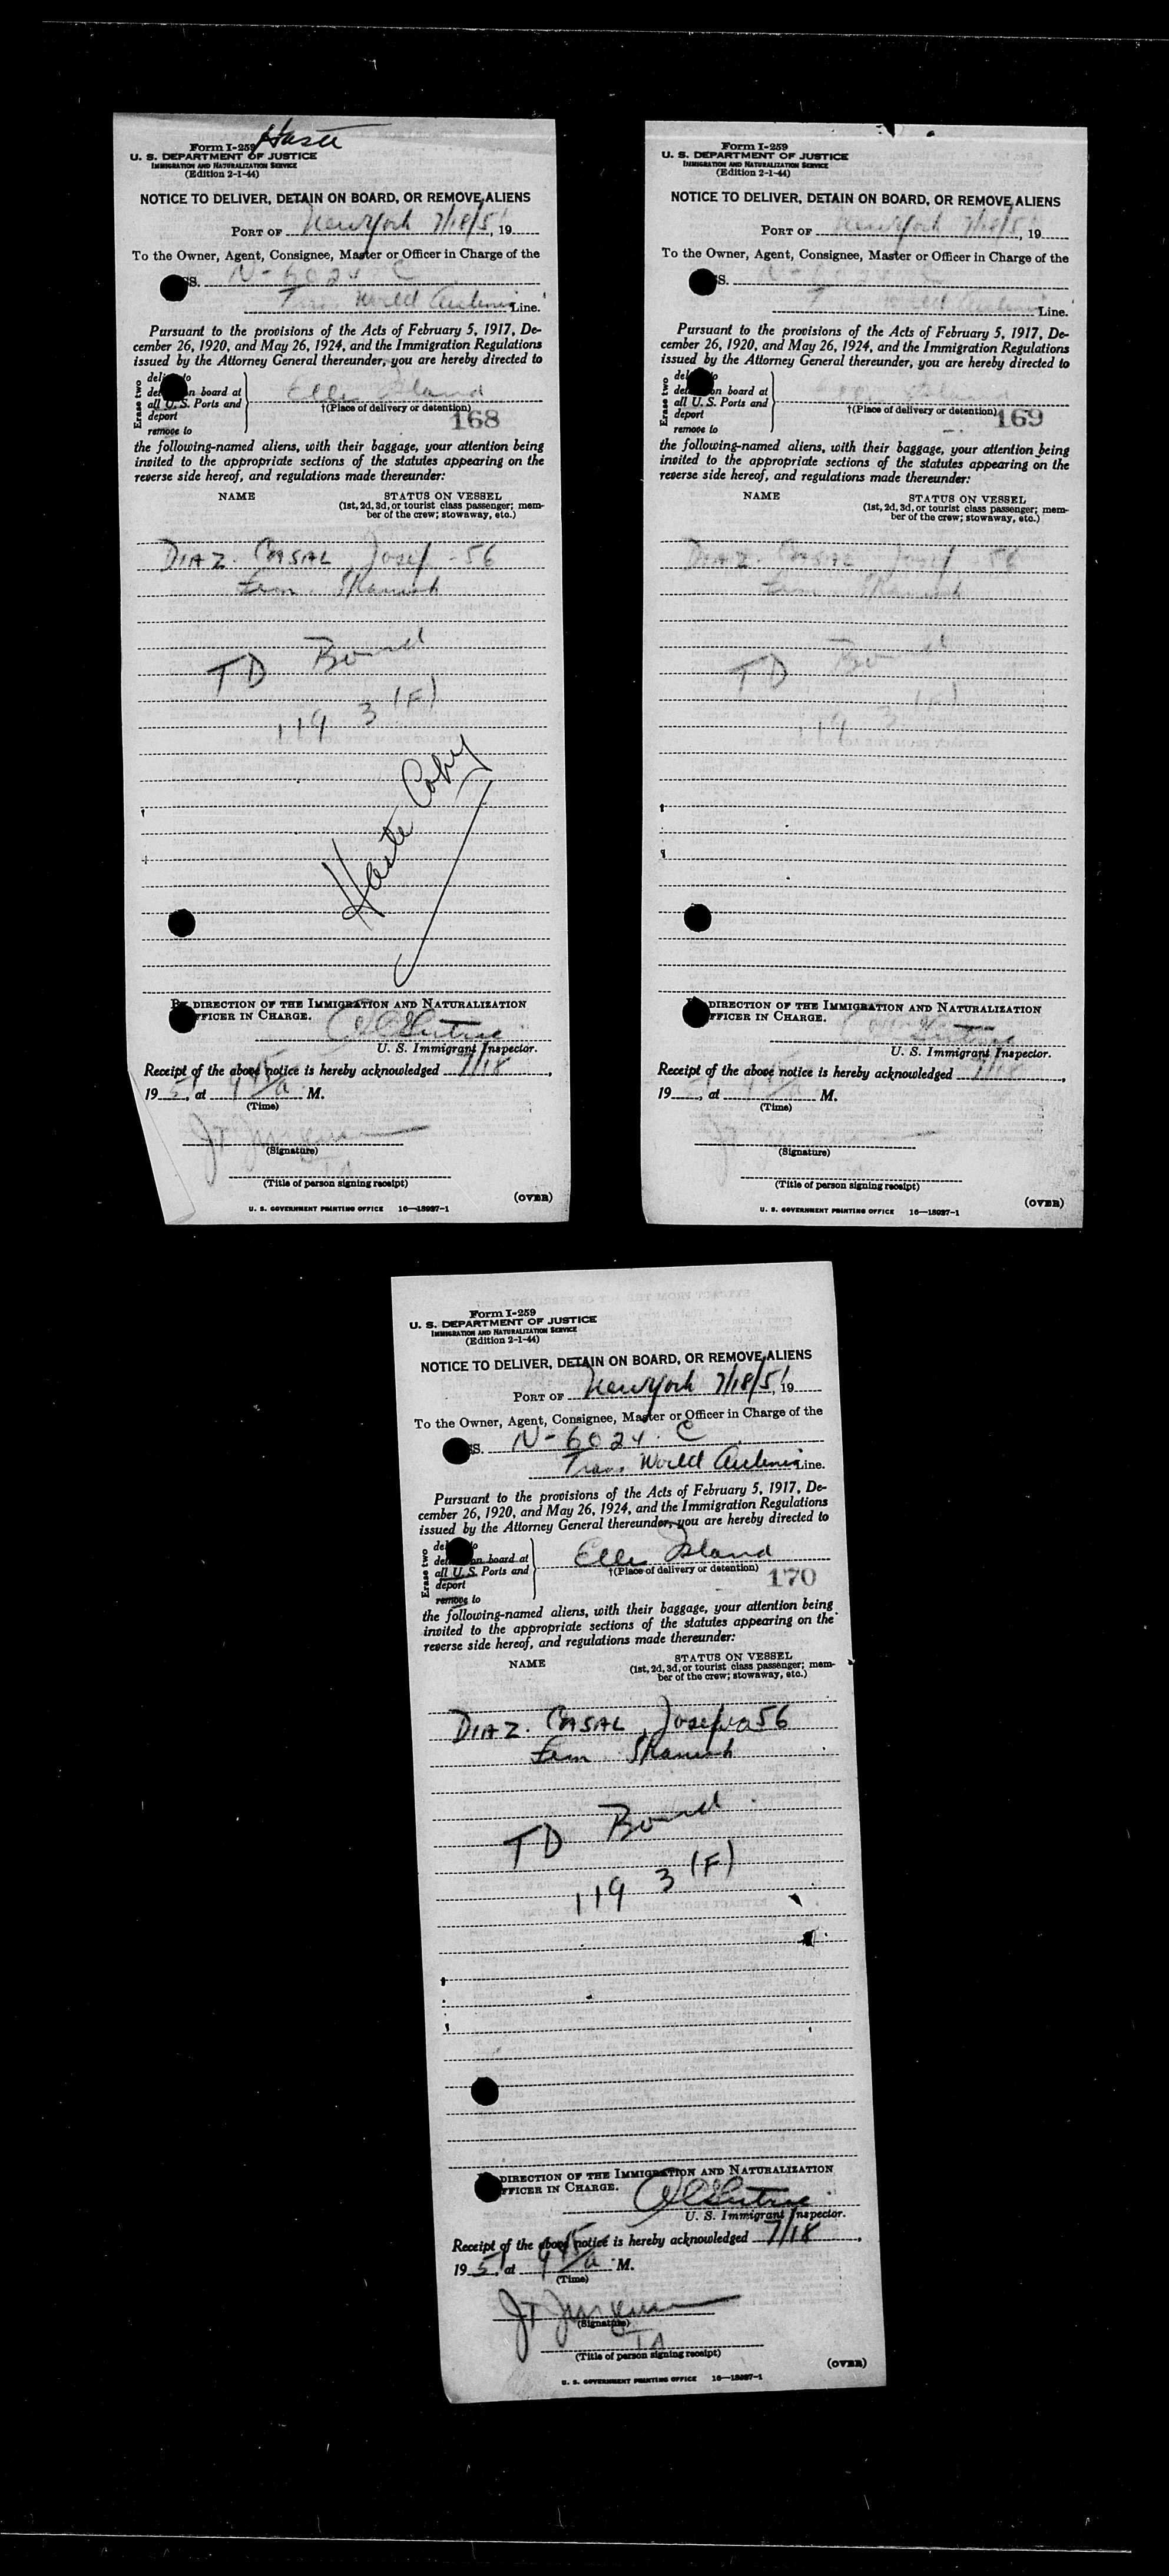 Haste
Form I-259
U. S. DEPARTMENT OF JUSTICE
IMMIGRATION AND NATURALIZATION SERVICE
(Edition 2-1-44)
NOTICE TO DELIVER, DETAIN ON BOARD, OR REMOVE ALIENS
PORT OF New York 7/18/51, 19
To the Owner, Agent, Consignee, Master or Officer in Charge of the
SS. N-6024 C
Trans World Airlines Line.
Pursuant to the provisions of the Acts of February 5, 1917, De-
cember 26, 1920, and May 26, 1924, and the Immigration Regulations
issued by the Attorney General thereunder, you are hereby directed to
Erase two
to
on board at
all U. S. Ports and
deport
remove to
Ellis Island
†(Place of delivery or detention)
168
the following-named aliens, with their baggage, your attention being
invited to the appropriate sections of the statutes appearing on the
reverse side hereof, and regulations made thereunder:
NAME STATUS ON VESSEL
(1st, 2d, 3d, or tourist class passenger; mem-
ber of the crew; stowaway, etc.)
DIAZ. CASAL, Josef - 56
Fem. Spanish
TD Board
119 3 (F)
Haste Copy
DIRECTION OF THE IMMIGRATION AND NATURALIZATION
OFFICER IN CHARGE.
U. S. Immigrant Inspector.
Receipt of the above notice is hereby acknowledged 7/18,
195, at 9 45/a M.
(Time)
(Signature)
TA
(Title of person signing receipt)
(OVER)
U. S. GOVERNMENT PRINTING OFFICE 16—18987-1
Form I-259
U. S. DEPARTMENT OF JUSTICE
IMMIGRATION AND NATURALIZATION SERVICE
(Edition 2-1-44)
NOTICE TO DELIVER, DETAIN ON BOARD, OR REMOVE ALIENS
PORT OF New York 7/18/51, 19
To the Owner, Agent, Consignee, Master or Officer in Charge of the
SS. N-6024 C
Trans World Airlines Line.
Pursuant to the provisions of the Acts of February 5, 1917, De-
cember 26, 1920, and May 26, 1924, and the Immigration Regulations
issued by the Attorney General thereunder, you are hereby directed to
Erase two
to
on board at
all U. S. Ports and
deport
remove to
Ellis Island
†(Place of delivery or detention)
169
the following-named aliens, with their baggage, your attention being
invited to the appropriate sections of the statutes appearing on the
reverse side hereof, and regulations made thereunder:
NAME STATUS ON VESSEL
(1st, 2d, 3d, or tourist class passenger; mem-
ber of the crew; stowaway, etc.)
DIAZ. CASAL Josef 56
Fem. Spanish
TD Board
119 3 (F)
DIRECTION OF THE IMMIGRATION AND NATURALIZATION
OFFICER IN CHARGE.
U. S. Immigrant Inspector.
Receipt of the above notice is hereby acknowledged 7/18,
19, at M.
(Time)
(Signature)
(Title of person signing receipt)
(OVER)
U. S. GOVERNMENT PRINTING OFFICE 16—18987-1
Form I-259
U. S. DEPARTMENT OF JUSTICE
IMMIGRATION AND NATURALIZATION SERVICE
(Edition 2-1-44)
NOTICE TO DELIVER, DETAIN ON BOARD, OR REMOVE ALIENS
PORT OF New York 7/18/51, 19
To the Owner, Agent, Consignee, Master or Officer in Charge of the
SS. N-6024. C
Trans World Airlines Line.
Pursuant to the provisions of the Acts of February 5, 1917, De-
cember 26, 1920, and May 26, 1924, and the Immigration Regulations
issued by the Attorney General thereunder, you are hereby directed to
Erase two
to
on board at
all U. S. Ports and
deport
remove to
Ellis Island
†(Place of delivery or detention)
170
the following-named aliens, with their baggage, your attention being
invited to the appropriate sections of the statutes appearing on the
reverse side hereof, and regulations made thereunder:
NAME STATUS ON VESSEL
(1st, 2d, 3d, or tourist class passenger; mem-
ber of the crew; stowaway, etc.)
DIAZ. CASAL, Josefa 56
Fem. Spanish
TD Board
119 3 (F)
DIRECTION OF THE IMMIGRATION AND NATURALIZATION
OFFICER IN CHARGE.
U. S. Immigrant Inspector.
Receipt of the above notice is hereby acknowledged 7/18,
1951, at 9 45/a M.
(Time)
(Signature)
TA
(Title of person signing receipt)
(OVER)
U. S. GOVERNMENT PRINTING OFFICE 16—18987-1